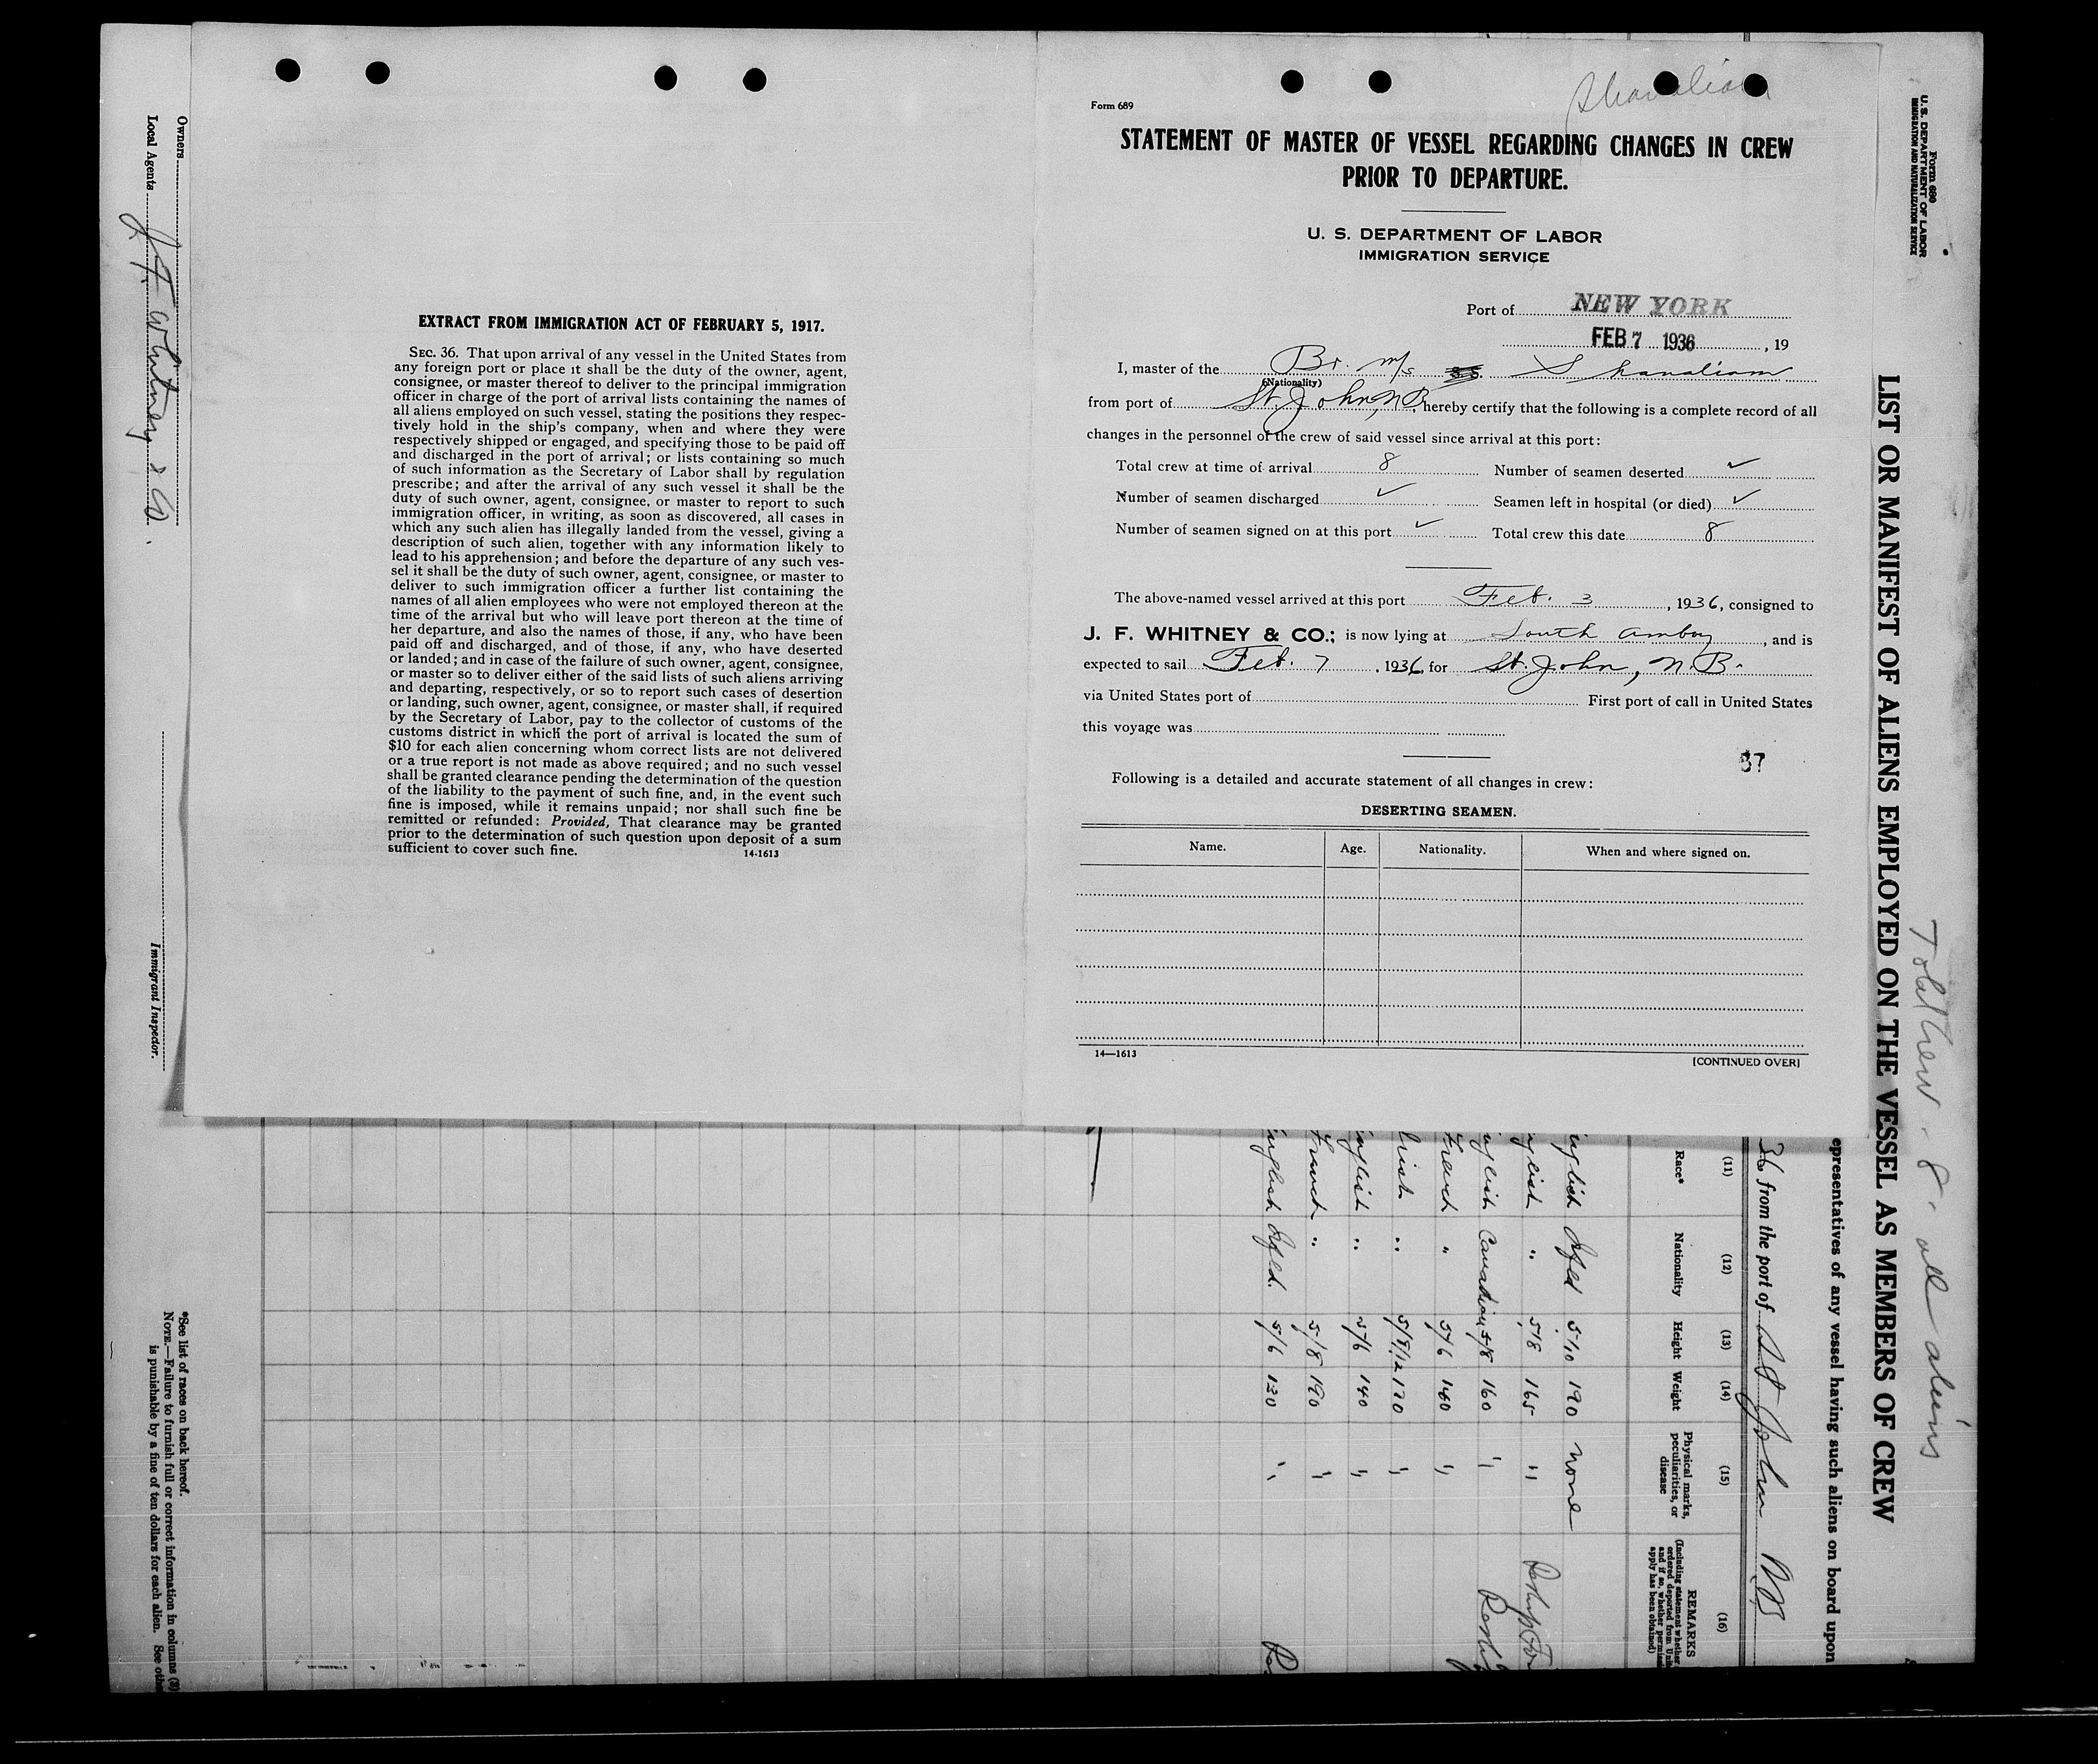 Owners
Local Agents J F Whitney & Co.
Immigrant Inspector.
*See list of races on back hereof.
NOTE.—Failure to furnish full or correct information in columns (3)
is punishable by a fine of ten dollars for each alien. See othe
EXTRACT FROM IMMIGRATION ACT OF FEBRUARY 5, 1917.
SEC. 36. That upon arrival of any vessel in the United States from
any foreign port or place it shall be the duty of the owner, agent,
consignee, or master thereof to deliver to the principal immigration
officer in charge of the port of arrival lists containing the names of
all aliens employed on such vessel, stating the positions they respec-
tively hold in the ship's company, when and where they were
respectively shipped or engaged, and specifying those to be paid off
and discharged in the port of arrival; or lists containing so much
of such information as the Secretary of Labor shall by regulation
prescribe; and after the arrival of any such vessel it shall be the
duty of such owner, agent, consignee, or master to report to such
immigration officer, in writing, as soon as discovered, all cases in
which any such alien has illegally landed from the vessel, giving a
description of such alien, together with any information likely to
lead to his apprehension; and before the departure of any such ves-
sel it shall be the duty of such owner, agent, consignee, or master to
deliver to such immigration officer a further list containing the
names of all alien employees who were not employed thereon at the
time of the arrival but who will leave port thereon at the time of
her departure, and also the names of those, if any, who have been
paid off and discharged, and of those, if any, who have deserted
or landed; and in case of the failure of such owner, agent, consignee,
or master so to deliver either of the said lists of such aliens arriving
and departing, respectively, or so to report such cases of desertion
or landing, such owner, agent, consignee, or master shall, if required
by the Secretary of Labor, pay to the collector of customs of the
customs district in which the port of arrival is located the sum of
$10 for each alien concerning whom correct lists are not delivered
or a true report is not made as above required; and no such vessel
shall be granted clearance pending the determination of the question
of the liability to the payment of such fine, and, in the event such
fine is imposed, while it remains unpaid; nor shall such fine be
remitted or refunded: Provided, That clearance may be granted
prior to the determination of such question upon deposit of a sum
sufficient to cover such fine. 14-1613
Form 689
STATEMENT OF MASTER OF VESSEL REGARDING CHANGES IN CREW
PRIOR TO DEPARTURE.
U. S. DEPARTMENT OF LABOR
IMMIGRATION SERVICE
Port of NEW YORK
FEB 7 1936, 19
I, master of the Br. m/s S.S. Shanalian
(Nationality)
from port of St. John, N.B. hereby certify that the following is a complete record of all
changes in the personnel of the crew of said vessel since arrival at this port:
Total crew at time of arrival 8 Number of seamen deserted ✓
Number of seamen discharged ✓ Seamen left in hospital (or died) ✓
Number of seamen signed on at this port ✓ Total crew this date 8
The above-named vessel arrived at this port Feb. 3, 1936, consigned to
J. F. WHITNEY & CO.; is now lying at South Amboy, and is
expected to sail Feb. 7, 1936, for St. John, N.B.
via United States port of First port of call in United States
this voyage was
37
Following is a detailed and accurate statement of all changes in crew:
DESERTING SEAMEN.
Name. Age. Nationality. When and where signed on.
14—1613
[CONTINUED OVER]
Form 680
U. S. DEPARTMENT OF LABOR
IMMIGRATION AND NATURALIZATION SERVICE
Total Crew - 8 - all aliens
LIST OR MANIFEST OF ALIENS EMPLOYED ON THE VESSEL AS MEMBERS OF CREW
epresentatives of any vessel having such aliens on board upon
36 from the port of St John NB
(11) (12) (13) (14) (15) (16)
Race* Nationality Height Weight Physical marks, peculiarities, or disease REMARKS
nglish Nfld 5/10 190 none
nglish " 5/8 165 "
nglish Canadian 5/8 160 "
French " 5/6 140 "
Irish " 5/8 1/2 120 "
nglish " 5/6 140 "
French " 5/8 190 "
nglish Nfld. 5/6 130 "